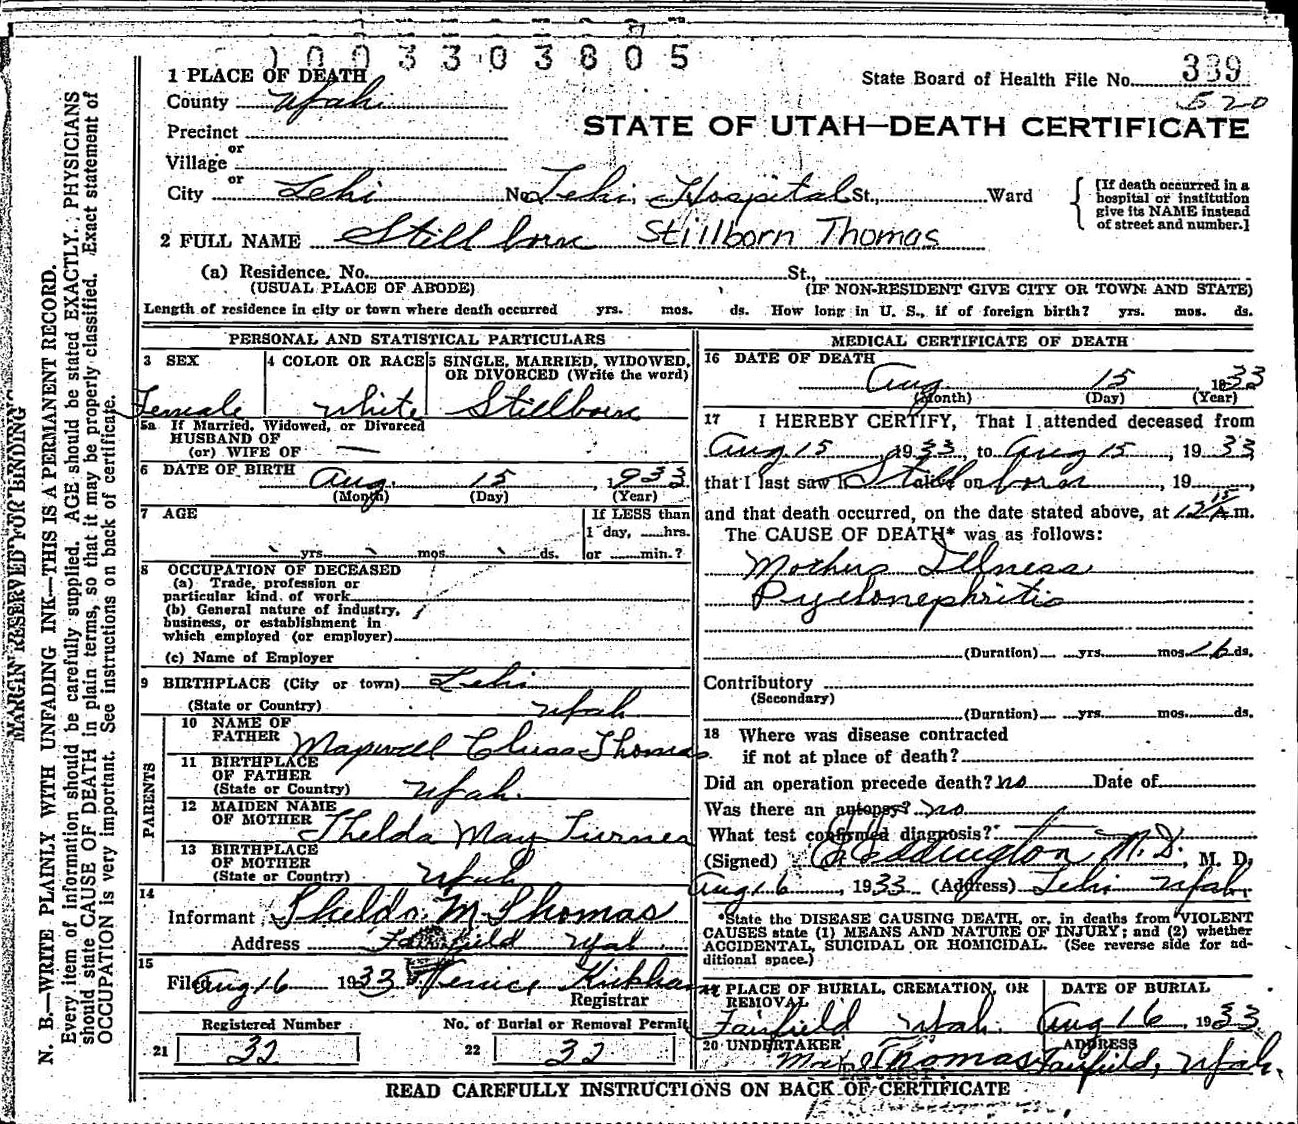 1003303805
1 PLACE OF DEATH
State Board of Health File No. 339
520
County Utah
STATE OF UTAH—DEATH CERTIFICATE
Precinct
or
Village
or
City Lehi No. Lehi Hospital St., Ward
[If death occurred in a
hospital or institution
give its NAME instead
of street and number.]
2 FULL NAME Stillborn Stillborn Thomas
(a) Residence. No. St.,
(USUAL PLACE OF ABODE) (IF NON-RESIDENT GIVE CITY OR TOWN AND STATE)
Length of residence in city or town where death occurred yrs. mos. ds. How long in U. S., if of foreign birth? yrs. mos. ds.
MARGIN RESERVED FOR BINDING
N. B.—WRITE PLAINLY WITH UNFADING INK—THIS IS A PERMANENT RECORD.
Every item of information should be carefully supplied. AGE should be stated EXACTLY. PHYSICIANS
should state CAUSE OF DEATH in plain terms, so that it may be properly classified. Exact statement of
OCCUPATION is very important. See instructions on back of certificate.
PERSONAL AND STATISTICAL PARTICULARS
3 SEX 4 COLOR OR RACE 5 SINGLE, MARRIED, WIDOWED,
OR DIVORCED (Write the word)
Female White Stillborn
5a If Married, Widowed, or Divorced
HUSBAND OF
(or) WIFE OF
6 DATE OF BIRTH Aug. 15, 1933
(Month) (Day) (Year)
7 AGE If LESS than
1 day, hrs.
yrs. mos. ds. or min.?
8 OCCUPATION OF DECEASED
(a) Trade, profession or
particular kind of work
(b) General nature of industry,
business, or establishment in
which employed (or employer)
(c) Name of Employer
9 BIRTHPLACE (City or town) Lehi
(State or Country) Utah
PARENTS
10 NAME OF
FATHER Thomas
11 BIRTHPLACE
OF FATHER
(State or Country) Utah.
12 MAIDEN NAME
OF MOTHER Thelda May Turner
13 BIRTHPLACE
OF MOTHER
(State or Country) Utah
14
Informant Thelda M Thomas
Address Fairfield Utah
15
Filed Aug 16 1933 Kirkham
Registrar
Registered Number No. of Burial or Removal Permit
21 32 22 32
MEDICAL CERTIFICATE OF DEATH
16 DATE OF DEATH
Aug 15, 1933
(Month) (Day) (Year)
17 I HEREBY CERTIFY, That I attended deceased from
Aug 15, 1933, to Aug 15, 1933,
that I last saw h alive on Stillborn, 19
and that death occurred, on the date stated above, at 12 15 A.m.
The CAUSE OF DEATH* was as follows:
Mothers Illness
Pyelonephritis
(Duration) yrs. mos. 16 ds.
Contributory
(Secondary)
(Duration) yrs. mos. ds.
18 Where was disease contracted
if not at place of death?
Did an operation precede death? no Date of
Was there an autopsy? no
What test confirmed diagnosis?
(Signed) Eddington M.D., M. D.
Aug 16, 1933 (Address) Lehi Utah.
*State the DISEASE CAUSING DEATH, or, in deaths from VIOLENT
CAUSES state (1) MEANS AND NATURE OF INJURY; and (2) whether
ACCIDENTAL, SUICIDAL OR HOMICIDAL. (See reverse side for ad-
ditional space.)
PLACE OF BURIAL, CREMATION, OR
REMOVAL
Fairfield Utah.
DATE OF BURIAL
Aug 16, 1933
20 UNDERTAKER Thomas
ADDRESS
Fairfield, Utah.
READ CAREFULLY INSTRUCTIONS ON BACK OF CERTIFICATE